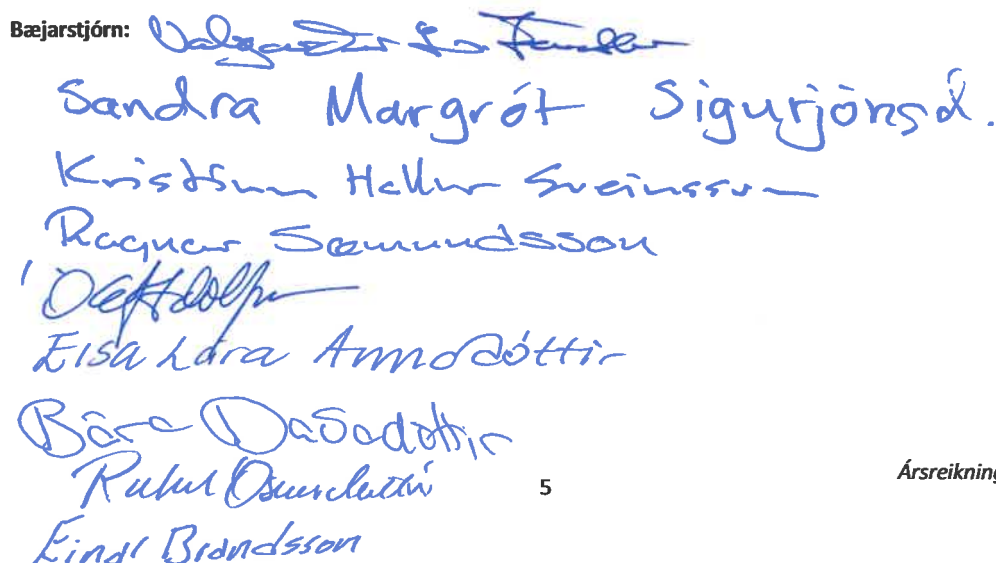 Bæjarstjórn: Valgarður L. Jónsson
Sandra Margrét Sigurjónsd.
Kristinn Hallur Sveinsson
Ragnar Sæmundsson
Ól Adolfs
Elsa Lára Arnardóttir
Bára Daðadóttir
Rakel Óskarsdóttir
5
Ársreikning
Einar Brandsson